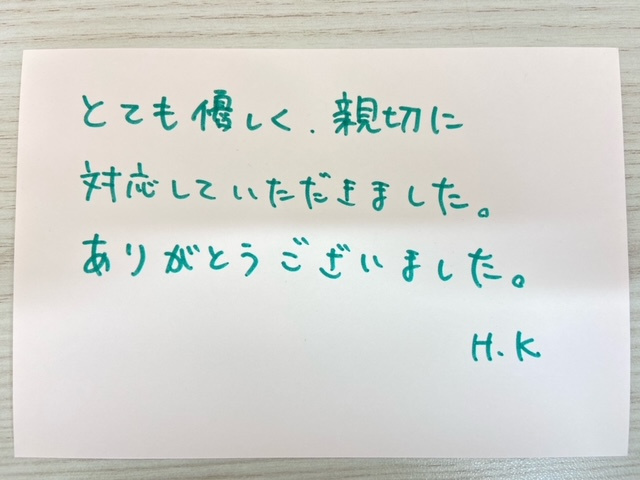 とても優しく、親切に
対応していただきました。
ありがとうございました。
H.K